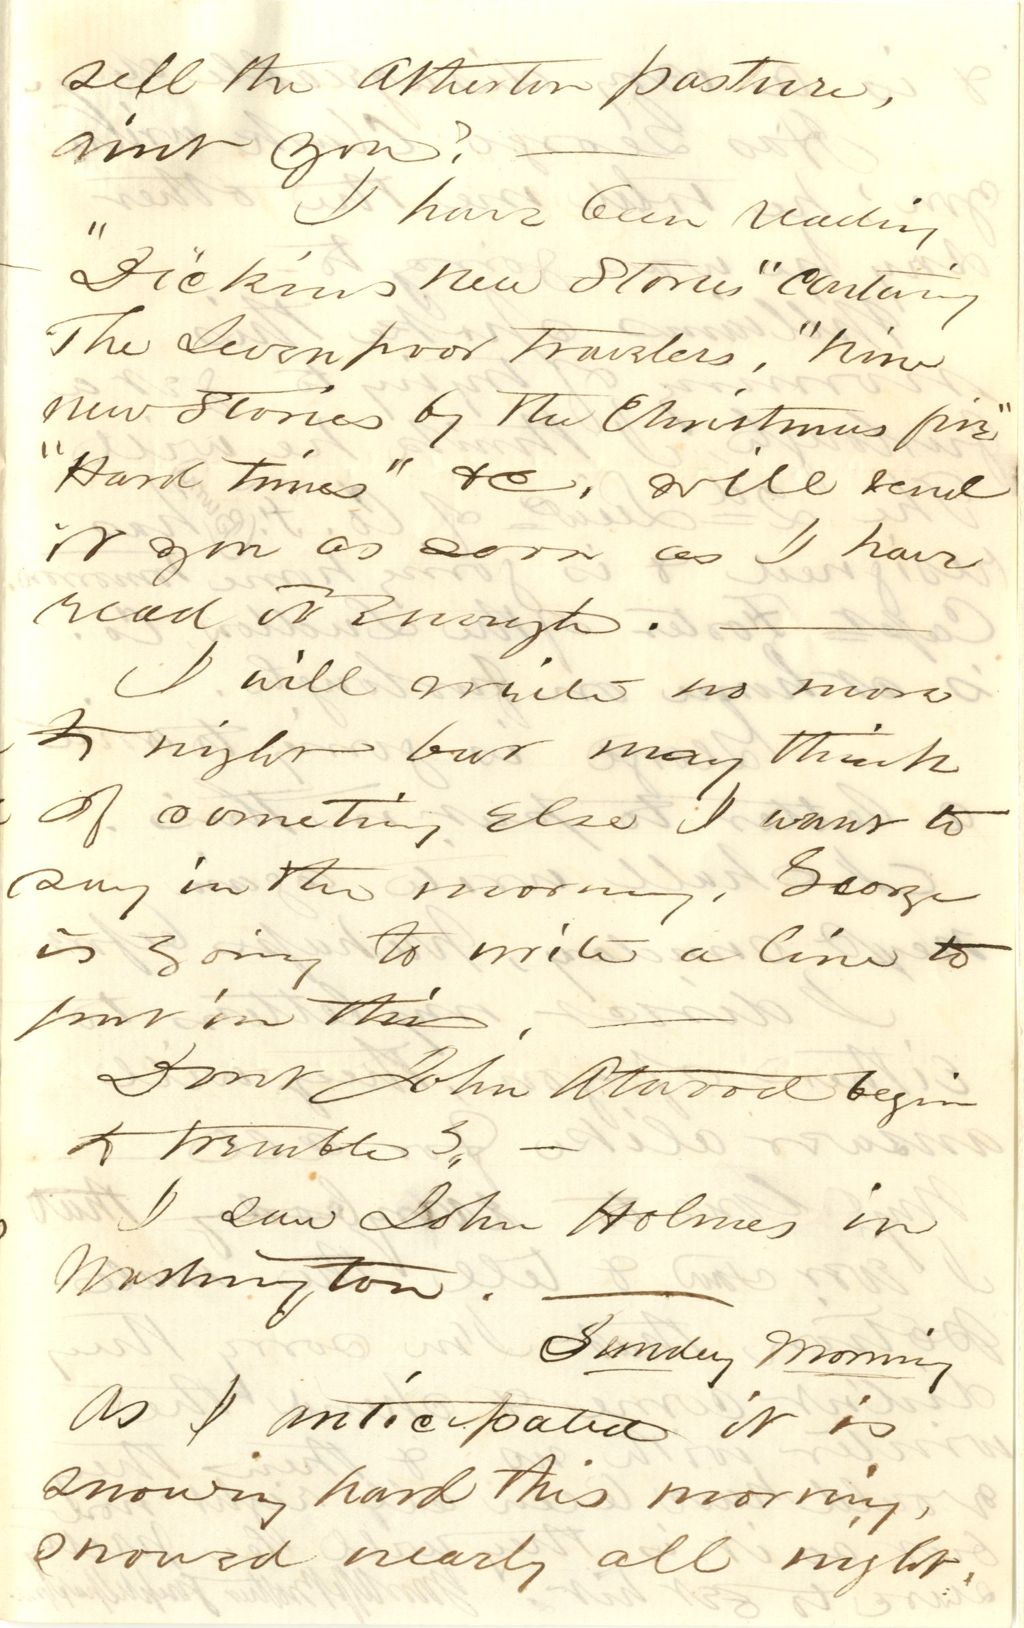 sell the Atherton pasture,
aint you? —
I have been reading
"Dickins new Stories" Containing
The Seven poor Travelers, "Nine
new Stories by the Christmas fire"
"Hard times" &c, will send
it you as soon as I have
read it Enough. —
I will write no more
to night but may think
of something Else I want to
say in the morning. George
is going to write a line to
put in this. —
Dont John Atwood begin
to tremble? —
I saw John Holmes in
Washington. —
Sunday Morning
As I anticipated it is
snowing hard this morning,
snowed nearly all night.